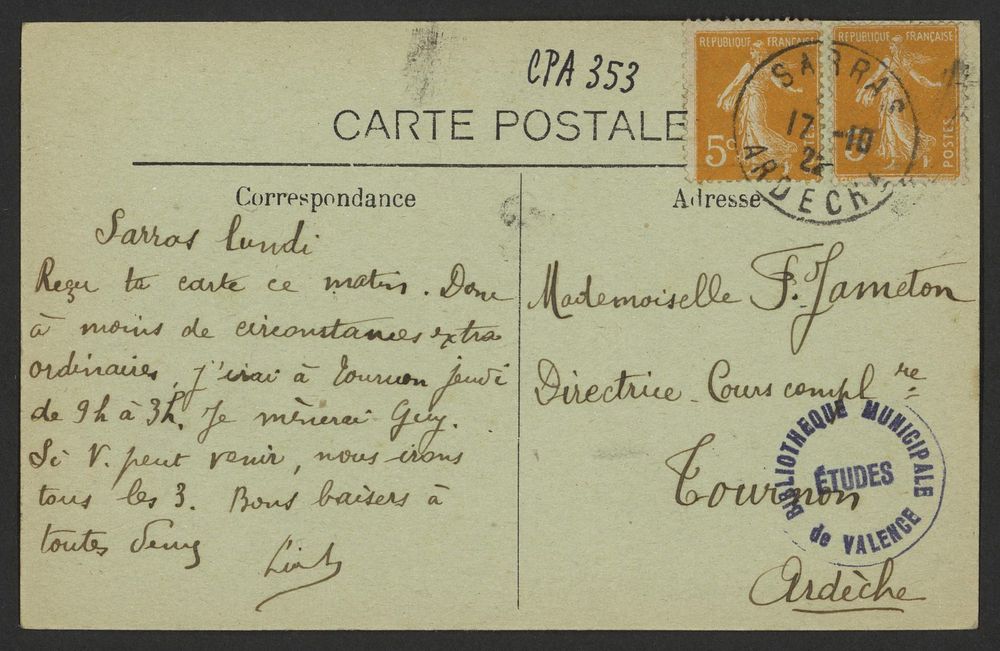 CPA 353
CARTE POSTALE
REPUBLIQUE FRANÇAISE
5c
REPUBLIQUE FRANÇAISE
POSTES
SARRAS
17-10
22
ARDECHE
Correspondance
Sarras lundi
Reçu ta carte ce matin. Donc
à moins de circonstances extra
ordinaires, j'irai à Tournon jeudi
de 9h à 3h. Je mènerai Guy.
Si V. peut venir, nous irons
tous les 3. Bons baisers à
toutes deux
Adresse
Mademoiselle F. Jameton
Directrice Cours compl re
Tournon
Ardèche
BIBLIOTHEQUE MUNICIPALE
ÉTUDES
de VALENCE